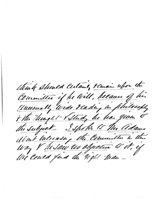 think should certainly remain upon the
Committee if he will, because of his
unusually wide reading in philosophy
& the thought & study he has given to
the subject. I spoke to Mr Adams
about enlarging the Committee in this
way & he saw no objection to it, if
we could find the right man.